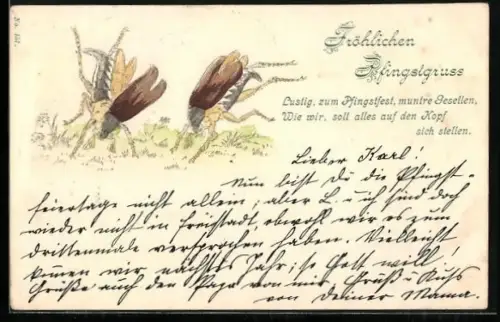 No. 557.
Fröhlichen
Pfingstgruss
Lustig, zum Pfingstfest, muntre Gesellen,
Wie wir, soll alles auf den Kopf
sich stellen.
Lieber Karl!
Nun bist du die Pfingst-
feiertage nicht allein; aber L. u. ich sind doch
wieder nicht in Freistadt, obwohl wir es zum
drittenmale versprochen haben. Vielleicht
können wir nächstes Jahr; so Gott will!
Grüße auch den Papa von mir, Gruß u. Kuß
von deiner Mama.